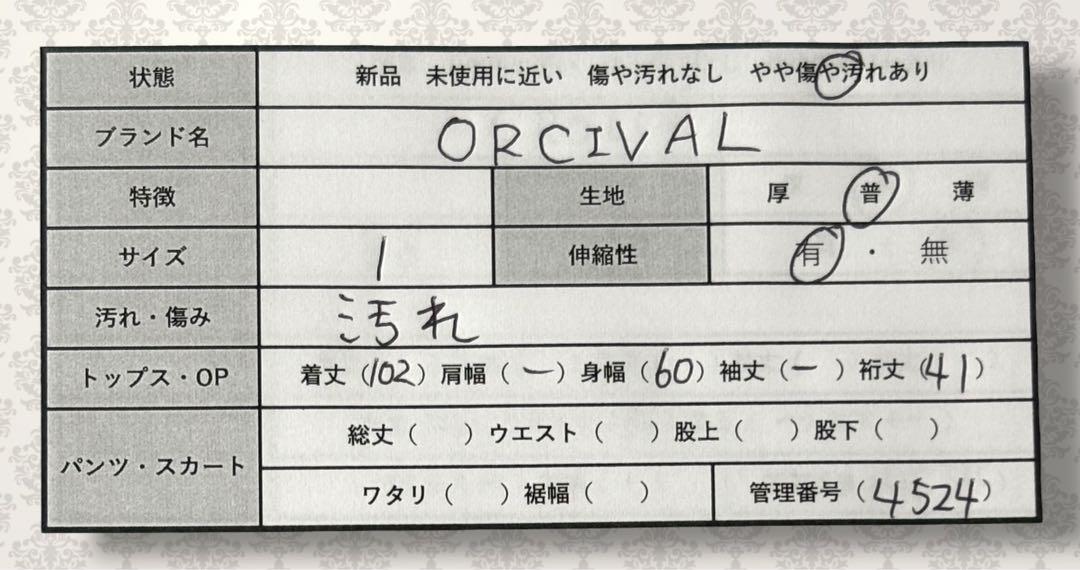 状態 新品 未使用に近い 傷や汚れなし やや傷や汚れあり
ブランド名 ORCIVAL
特徴 生地 厚 普 薄
サイズ 1 伸縮性 有 ・ 無
汚れ・傷み 汚れ
トップス・OP 着丈（102）肩幅（ー）身幅（60）袖丈（ー）裄丈（41）
パンツ・スカート 総丈（ ）ウエスト（ ）股上（ ）股下（ ）
ワタリ（ ）裾幅（ ） 管理番号（4524）